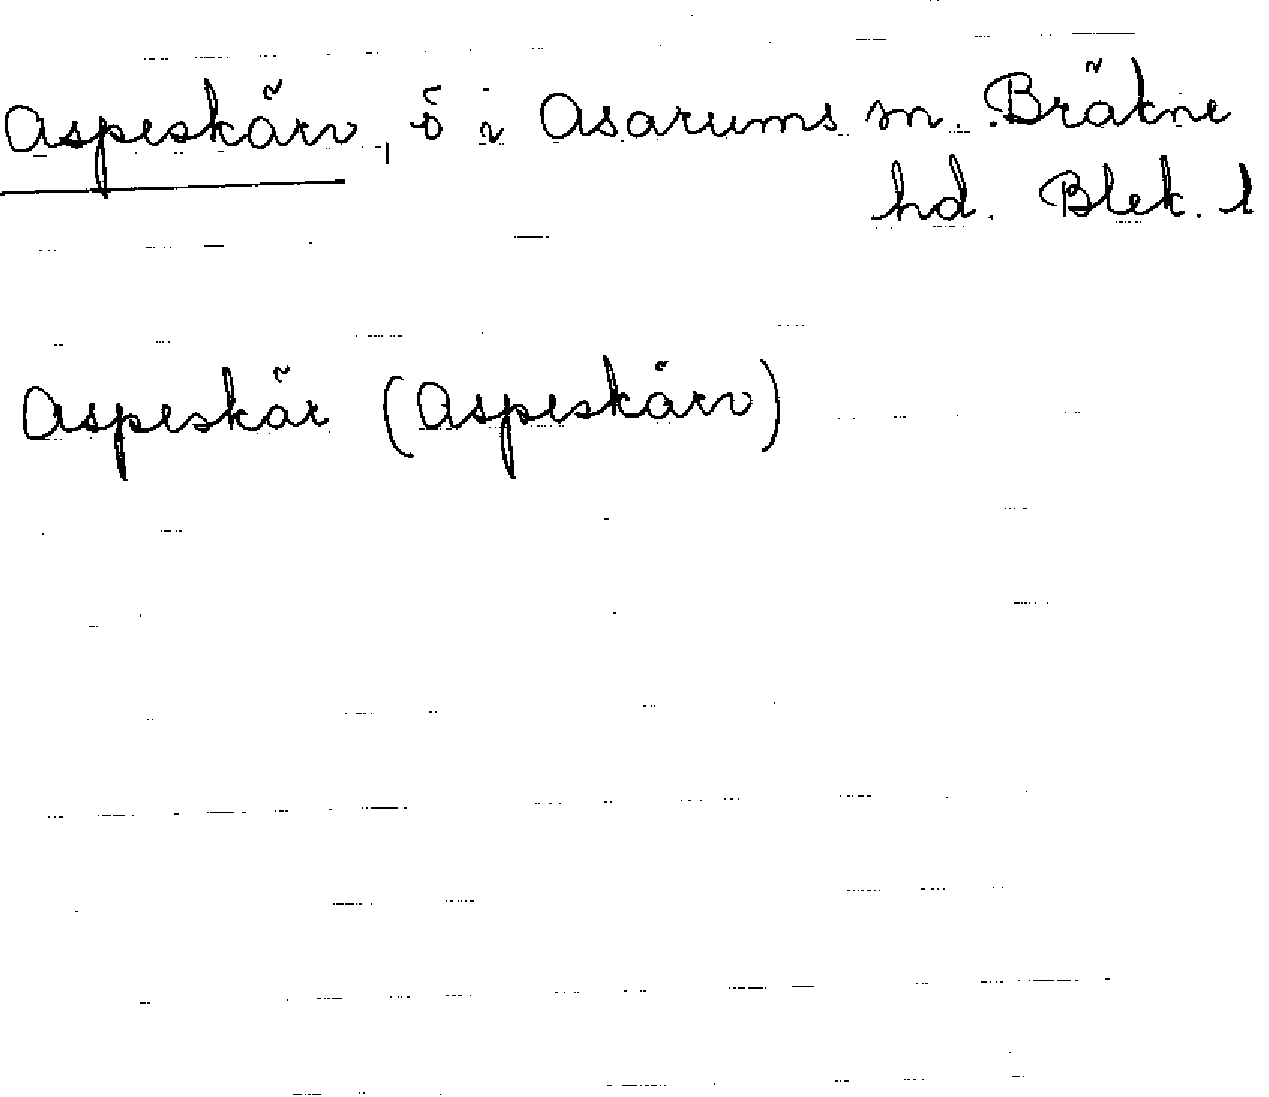 Aspeskärv, ö i Asarums sn. Bräkne
hd. Blek. l
Aspeskär (Aspeskärv)